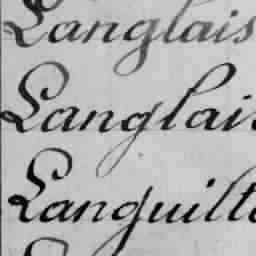 Langlais
Langlais
Languille